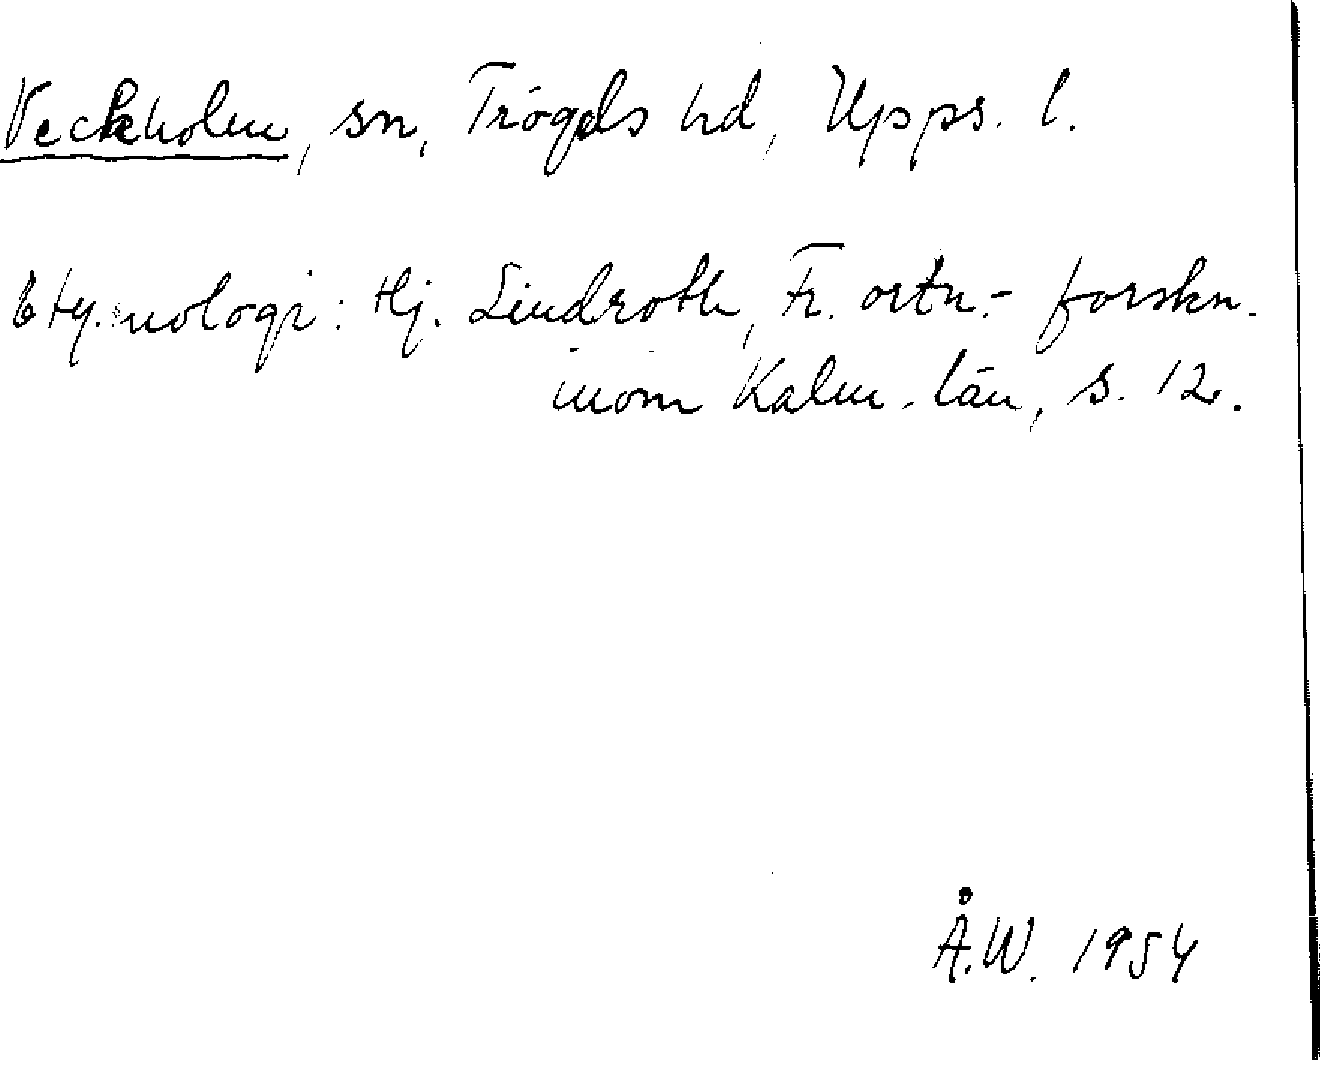 Veckholm, sn, Trögds hd, Upps. l.
Etymologi: Hj. Lindroth, Fr. ortn.- forskn.
inom Kalm. län, s. 12.
Å.W. 1954